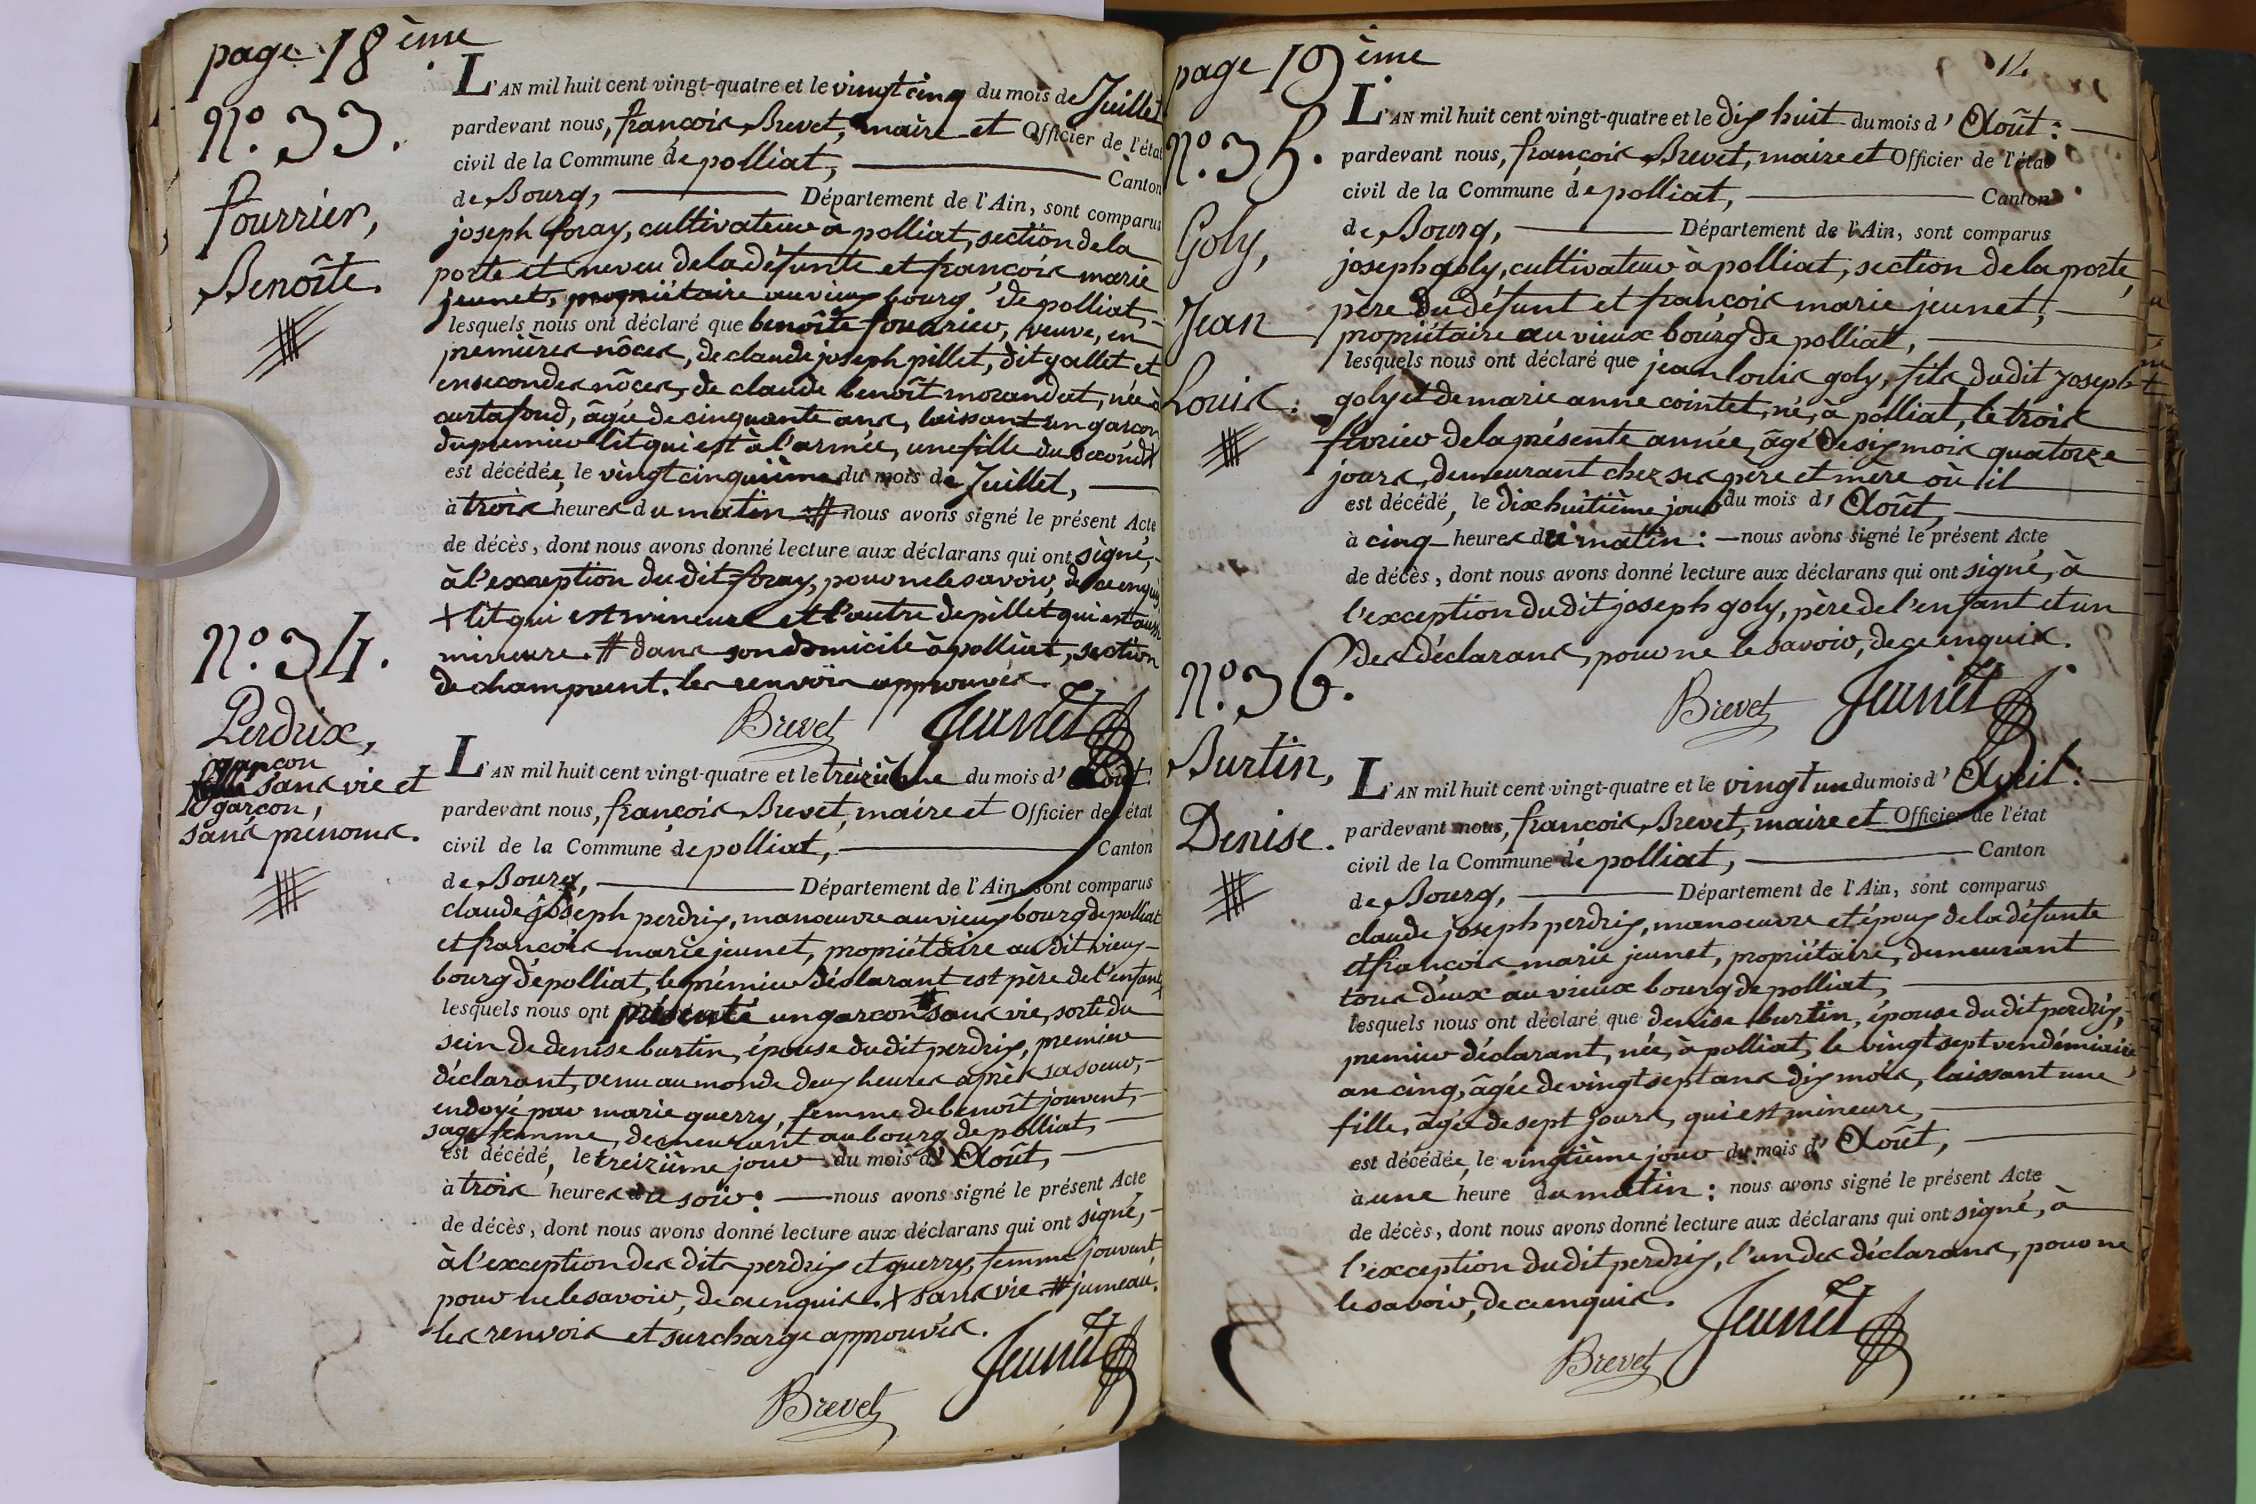 page 18ème
N.° 33.
fourrier,
Benoîte.
L'AN mil huit cent vingt-quatre et le vingt cinq du mois de Juillet
pardevant nous, françois Brevet, maire et Officier de l'état
civil de la Commune de polliat, Canton
de Bourg, Département de l'Ain, sont comparus
joseph foray, cultivateur à polliat, section de la
porte et neveu de la défunte et françois marie
jeunet, propriétaire au vieux bourg de polliat,
lesquels nous ont déclaré que benoîte fourrier, veuve, en
premières nôces, de claude joseph pillet, dit gallet et
en secondes nôces, de claude benoît morandat, née à
curtafond, âgée de cinquante ans, laissant un garçon
du premier lit qui est à l'armée, une fille du second +
est décédée, le vingt cinquième du mois de Juillet,
à trois heures du matin # nous avons signé le présent Acte
de décès, dont nous avons donné lecture aux déclarans qui ont signé,
à l'exception du dit foray, pour ne le savoir, de ce enquis,
+ lit qui est mineure et l'autre de pillet qui est aussi
mineure. # dans son domicile à polliat, section
de champvent. les renvois approuvés.
Brevet Jeunet
N.° 34.
Perdrix,
garçon
sans vie et
garçon,
sans prenoms.
L'AN mil huit cent vingt-quatre et le treizième du mois d' Août.
pardevant nous, françois Brevet, maire et Officier de l'état
civil de la Commune de polliat, Canton
de Bourg, Département de l'Ain, sont comparus
claude joseph perdrix, manoeuvre au vieux bourg de polliat
et françois marie jeunet, propriétaire au dit vieux
bourg de polliat, le prémier déclarant est père de l'enfant +
lesquels nous ont présenté un garçon # sans vie, sorti du
sein de denise burtin, épouse du dit perdrix, premier
déclarant, venu au monde deux heures après sa soeur,
endoyé par marie guerry, femme de benoît jouvent,
sage femme, demeurant au bourg de polliat,
est décédé, le treizième jour du mois d' Août,
à trois heures du soir: nous avons signé le présent Acte
de décès, dont nous avons donné lecture aux déclarans qui ont signé,
à l'exception des dits perdrix et guerry, femme jouvent
pour ne le savoir, de ce enquis. + sans vie # jumeau.
les renvois et surcharge approuvés.
Brevet Jeunet
page 19ème
14
N.° 35.
Goly,
Jean
Louis.
L'AN mil huit cent vingt-quatre et le dix huit du mois d' Août:
pardevant nous, françois Brevet, maire et Officier de l'état
civil de la Commune de polliat, Canton
de Bourg, Département de l'Ain, sont comparus
joseph goly, cultivateur à polliat, section de la porte,
père du défunt et françois marie jeunet,
propriétaire au vieux bourg de polliat,
lesquels nous ont déclaré que jean louis goly, fils du dit joseph
goly et de marie anne cointet, né, à polliat, le trois
février de la présente année, âgé de six mois quatorze
jours, demeurant chez ses père et mère où il
est décédé, le dix huitième jour du mois d' Août,
à cinq heures du matin: nous avons signé le présent Acte
de décès, dont nous avons donné lecture aux déclarans qui ont signé, à
l'exception du dit joseph goly, père de l'enfant et un
des déclarans, pour ne le savoir, de ce enquis.
Brevet Jeunet
N.° 36.
Burtin,
Denise.
L'AN mil huit cent vingt-quatre et le vingt un du mois d'
pardevant nous, françois Brevet, maire et Officier de l'état
civil de la Commune de polliat, Canton
de Bourg, Département de l'Ain, sont comparus
claude joseph perdrix, manoeuvre et époux de la défunte
et françois marie jeunet, propriétaire, demeurant
tous deux au vieux bourg de polliat,
lesquels nous ont déclaré que denise burtin, épouse du dit perdrix,
premier déclarant, née, à polliat, le vingt sept vendémiaire
an cinq, âgée de vingt sept ans dix mois, laissant une
fille, âgée de sept jours, qui est mineure,
est décédée, le vingtième jour du mois d' Août,
à une heure du matin: nous avons signé le présent Acte
de décès, dont nous avons donné lecture aux déclarans qui ont signé, à
l'exception du dit perdrix, l'un des déclarans, pour ne
le savoir, de ce enquis.
Brevet Jeunet